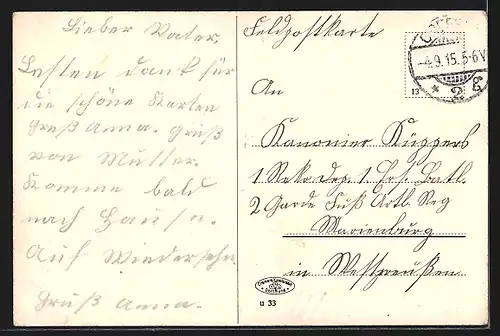 Lieber Vater,
Besten dank für
die schöne Karten
Gruß Anna. Gruß
von Mutter.
Komme bald
nach Hause.
Auf Wiedersehn
Gruß Anna.
Feldpostkarte
An
Kanonier Küppers
1 Rekr. Dep. 1 Ers. Batl.
2 Garde Fuß Artl. Reg
Marienburg
in Westpreußen
-4.9.15.5-6V
* 2 g
13
u 33